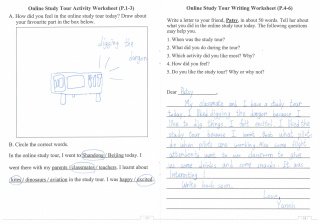 Online Study Tour Activity Worksheet (P.1-3)
A. How did you feel in the online study tour today? Draw about your favourite part in the box below.
digging the
B. Circle the correct words.
In the online study tour, I went to Shandong / Beijing today. I
went there with my parents / classmates / teachers. I learnt about
/ dinosaurs / aviation in the study tour. I was happy / excited.
Online Study Tour Writing Worksheet (P.4-6)
Write a letter to your friend, Patsy, in about 50 words. Tell her about
what you did in the online study tour today. The following questions
may help you.
1. When was the study tour?
2. What did you do during the tour?
3. Which activity did you like most? Why?
4. How did you feel?
5. Do you like the study tour? Why or why not?
Dear Patsy,
My classmate and I have a study tour
today. I liked digging the because I
like to dig things. I felt excited. I liked the
study tour because I more than what pilots
do when pilots are working like some flight
attendants went to our classroom to give
us some drinks and some snacks. It was
interesting!
Write back soon.
Love,